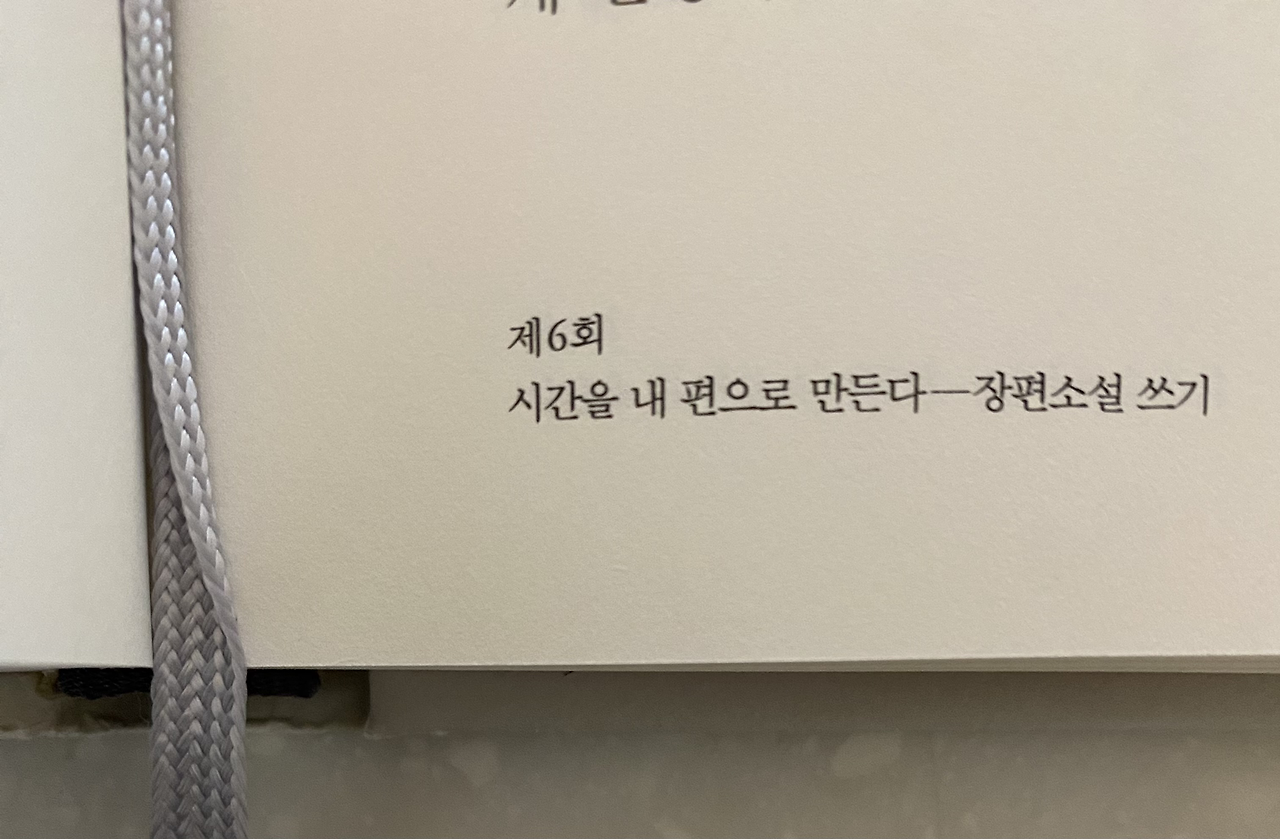 제6회
시간을 내 편으로 만든다—장편소설 쓰기